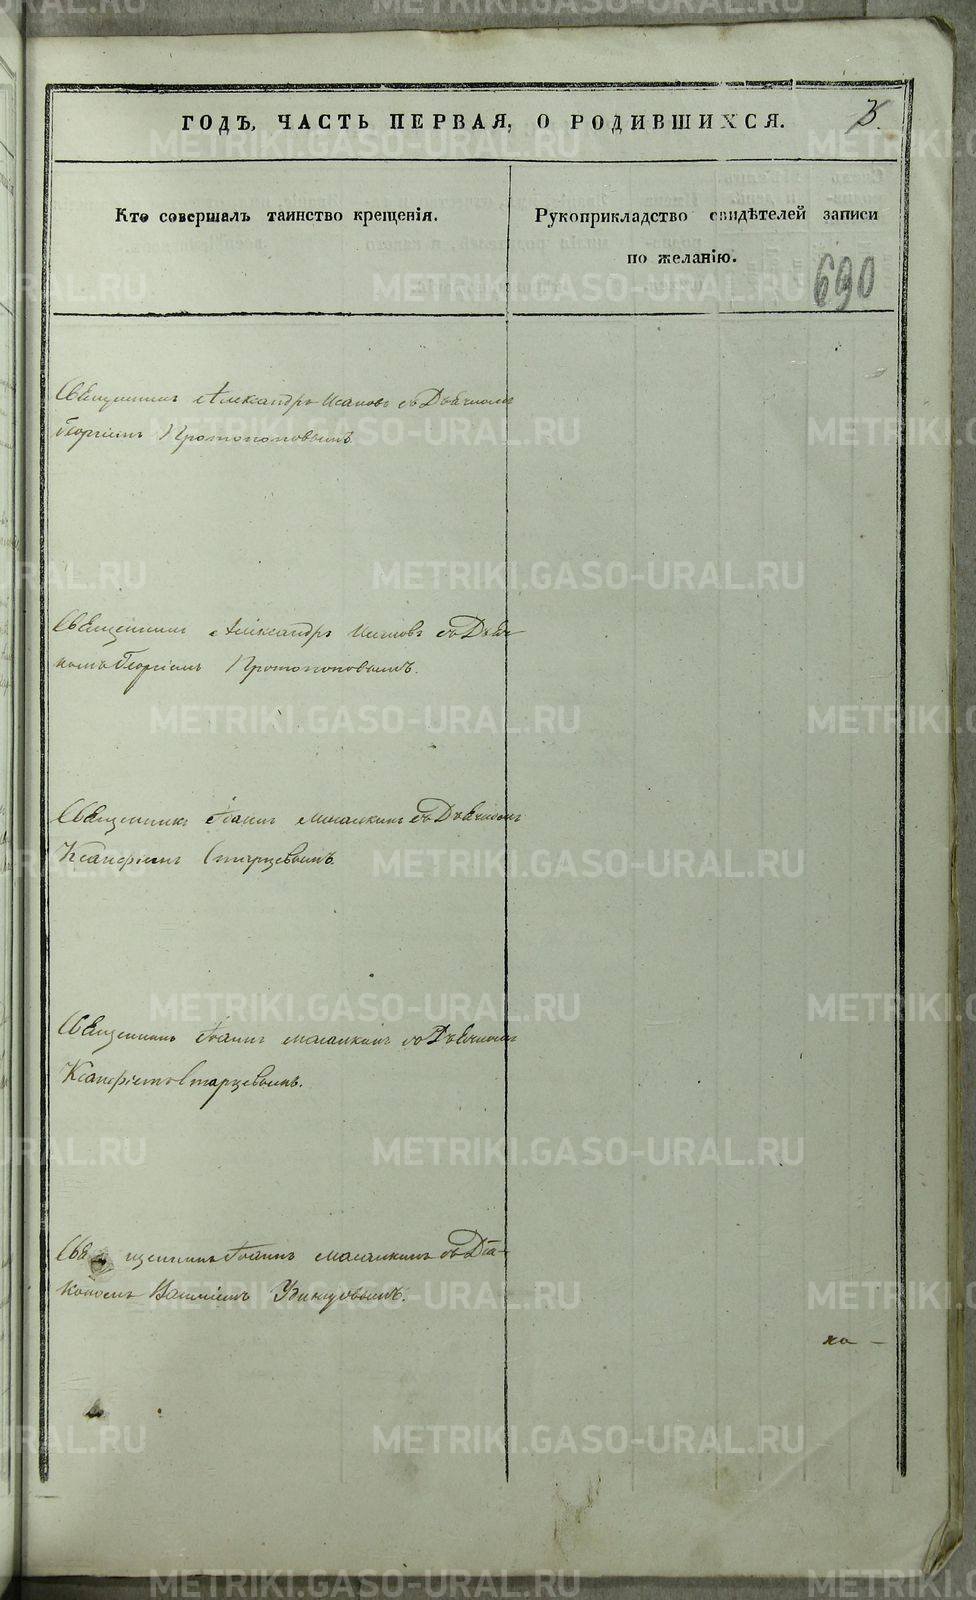 ГОДЪ, ЧАСТЬ ПЕРВАЯ, О РОДИВШИХСЯ.
Кто совершалъ таинство крещенія.
Рукоприкладство свидѣтелей записи
по желанію.
690
Священникъ Александръ Исаковъ съ Дьячкомъ
Георгіемъ Протопоповымъ
Священникъ Александръ Исаковъ съ Дьяч-
комъ Георгіемъ Протопоповымъ.
Священникъ Іоаннъ съ Дьячкомъ
Ксанфіемъ Старцевымъ
Священникъ Іоаннъ съ Дьячкомъ
Ксанфіемъ Старцевымъ.
Священникъ Іоаннъ съ Діа-
кономъ Удинцовымъ.
METRIKI.GASO-URAL.RU